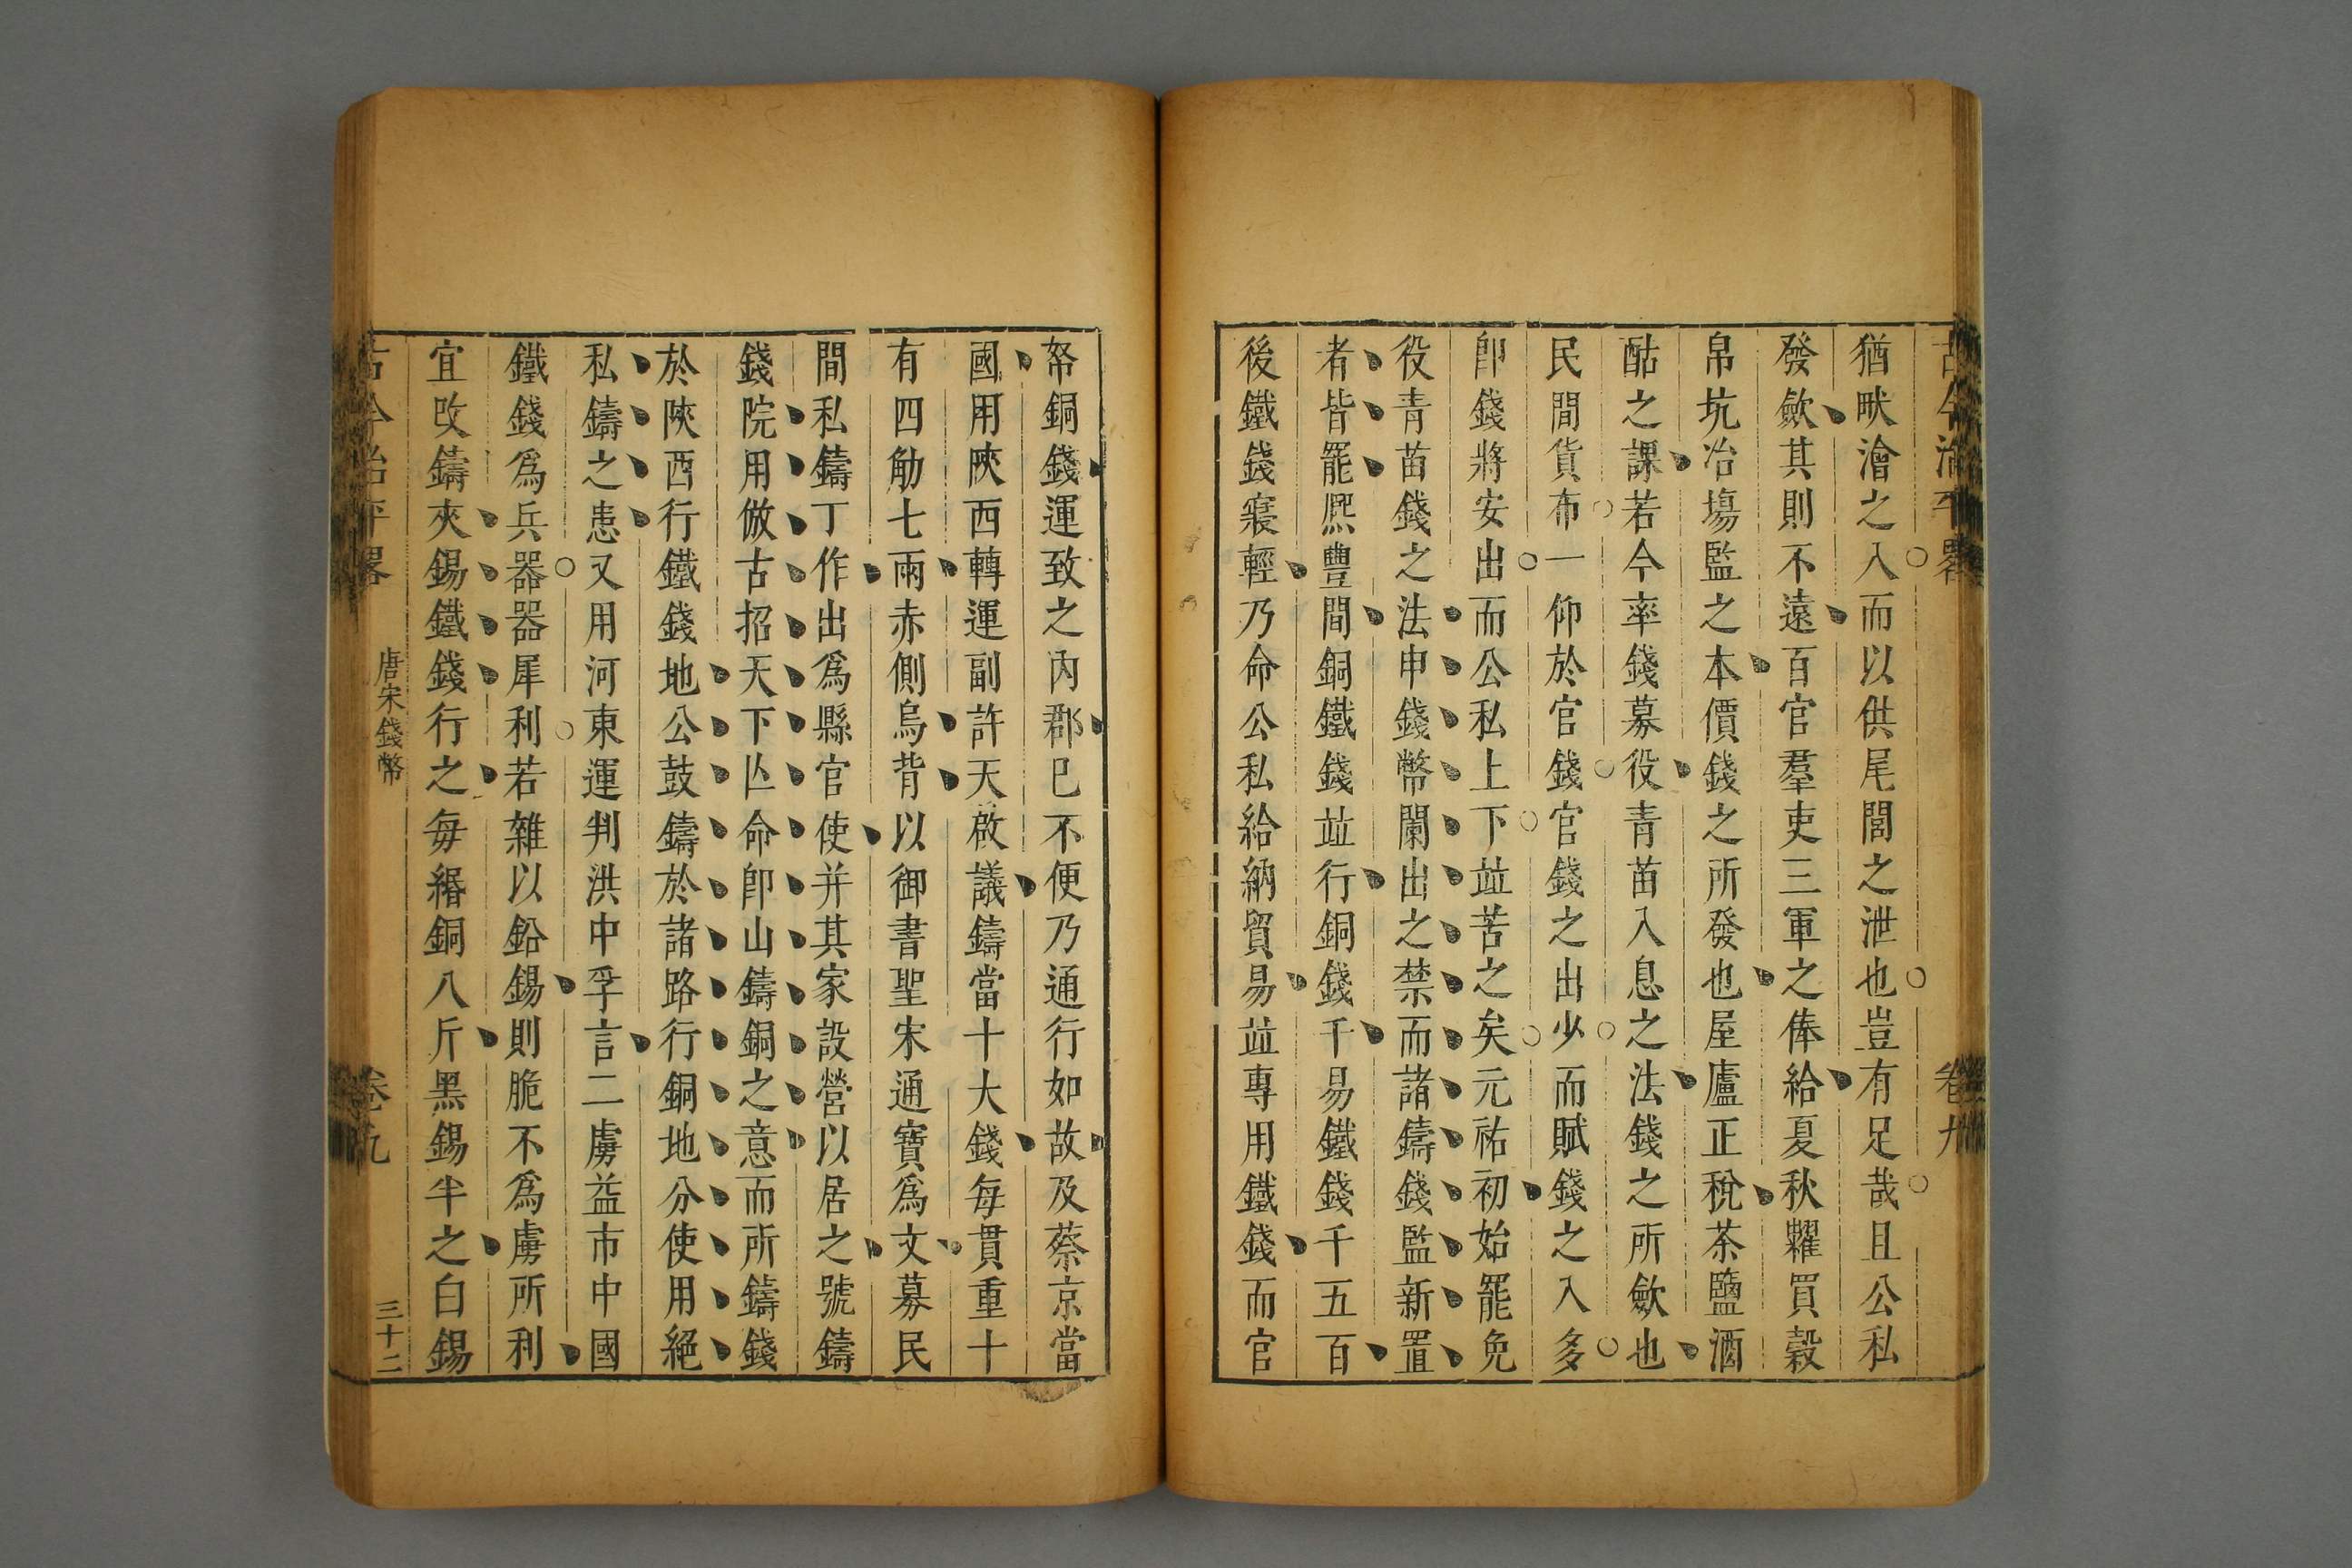 古今治平畧
卷九
猶畎澮之入而以供尾閭之泄也豈有足哉且公私
發歛其則不遠百官羣吏三軍之俸給夏秋糴買穀
帛坑冶塲監之本價錢之所發也屋廬正稅茶鹽酒
酤之課若今率錢募役青苗入息之法錢之所歛也
民間貨布一仰於官錢官錢之出少而賦錢之入多
卽錢將安出而公私上下竝苦之矣元祐初始罷免
役青苗錢之法申錢幣闌出之禁而諸鑄錢監新置
者皆罷熈豐間銅鐵錢竝行銅錢千易鐵錢千五百
後鐵錢寖輕乃命公私給納貿易竝專用鐵錢而官
帑銅錢運致之內郡已不便乃通行如故及蔡京當
國用陜西轉運副許天啟議鑄當十大錢每貫重十
有四觔七兩赤側烏背以御書聖宋通寶爲文募民
間私鑄丁作出爲縣官使并其家設營以居之號鑄
錢院用倣古招天下亾命卽山鑄銅之意而所鑄錢
於陜西行鐵錢地公鼓鑄於諸路行銅地分使用絕
私鑄之患又用河東運判洪中孚言二虜益市中國
鐵錢爲兵器器犀利若雜以鉛錫則脆不爲虜所利
宜改鑄夾錫鐵錢行之每緡銅八斤黑錫半之白錫
古今治平畧
唐宋錢幣
卷九
三十二